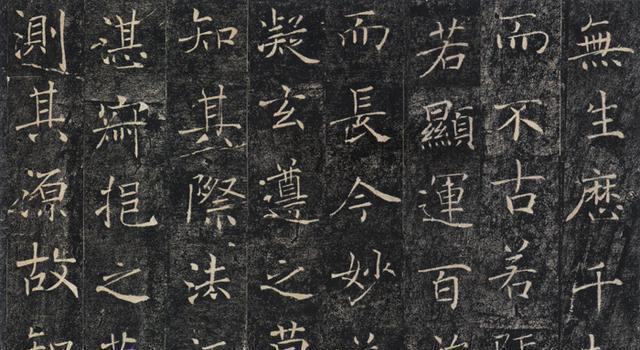 無生歷千
而不古若
若顯運百
而長今妙
凝玄遵之
知其際法
湛寂挹之
測其源故